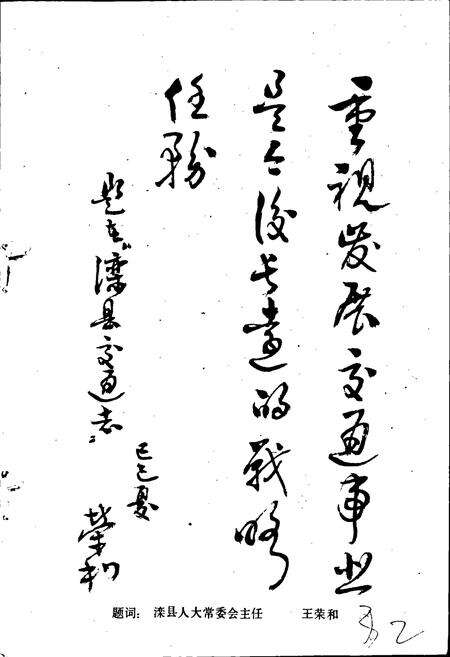 重视发展交通事业
是今後长远的战略
任務
题在“滦县交通志”
己巳夏
荣和
题词： 滦县人大常委会主任 王荣和